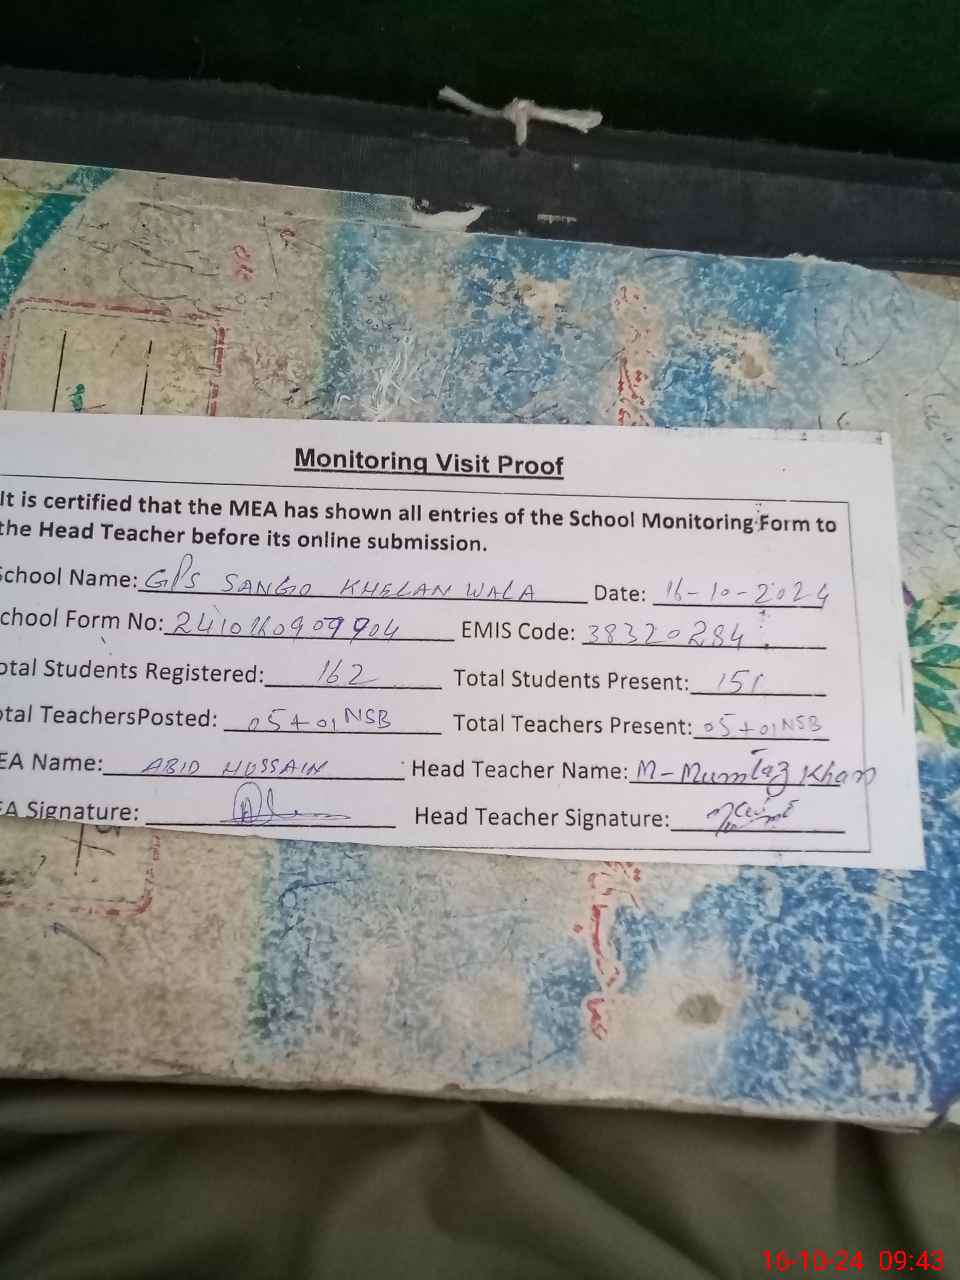 Monitoring Visit Proof
It is certified that the MEA has shown all entries of the School Monitoring Form to
the Head Teacher before its online submission.
School Name: GPS SANGO KHELAN WALA Date: 16-10-2024
chool Form No: 2410160909904 EMIS Code: 38320284
otal Students Registered: 162 Total Students Present: 151
otal TeachersPosted: 05+01 NSB Total Teachers Present: 05+01 NSB
EA Name: ABID HUSSAIN Head Teacher Name: M-Mumtaz Khan
EA Signature: Head Teacher Signature:
16-10-24 09:43